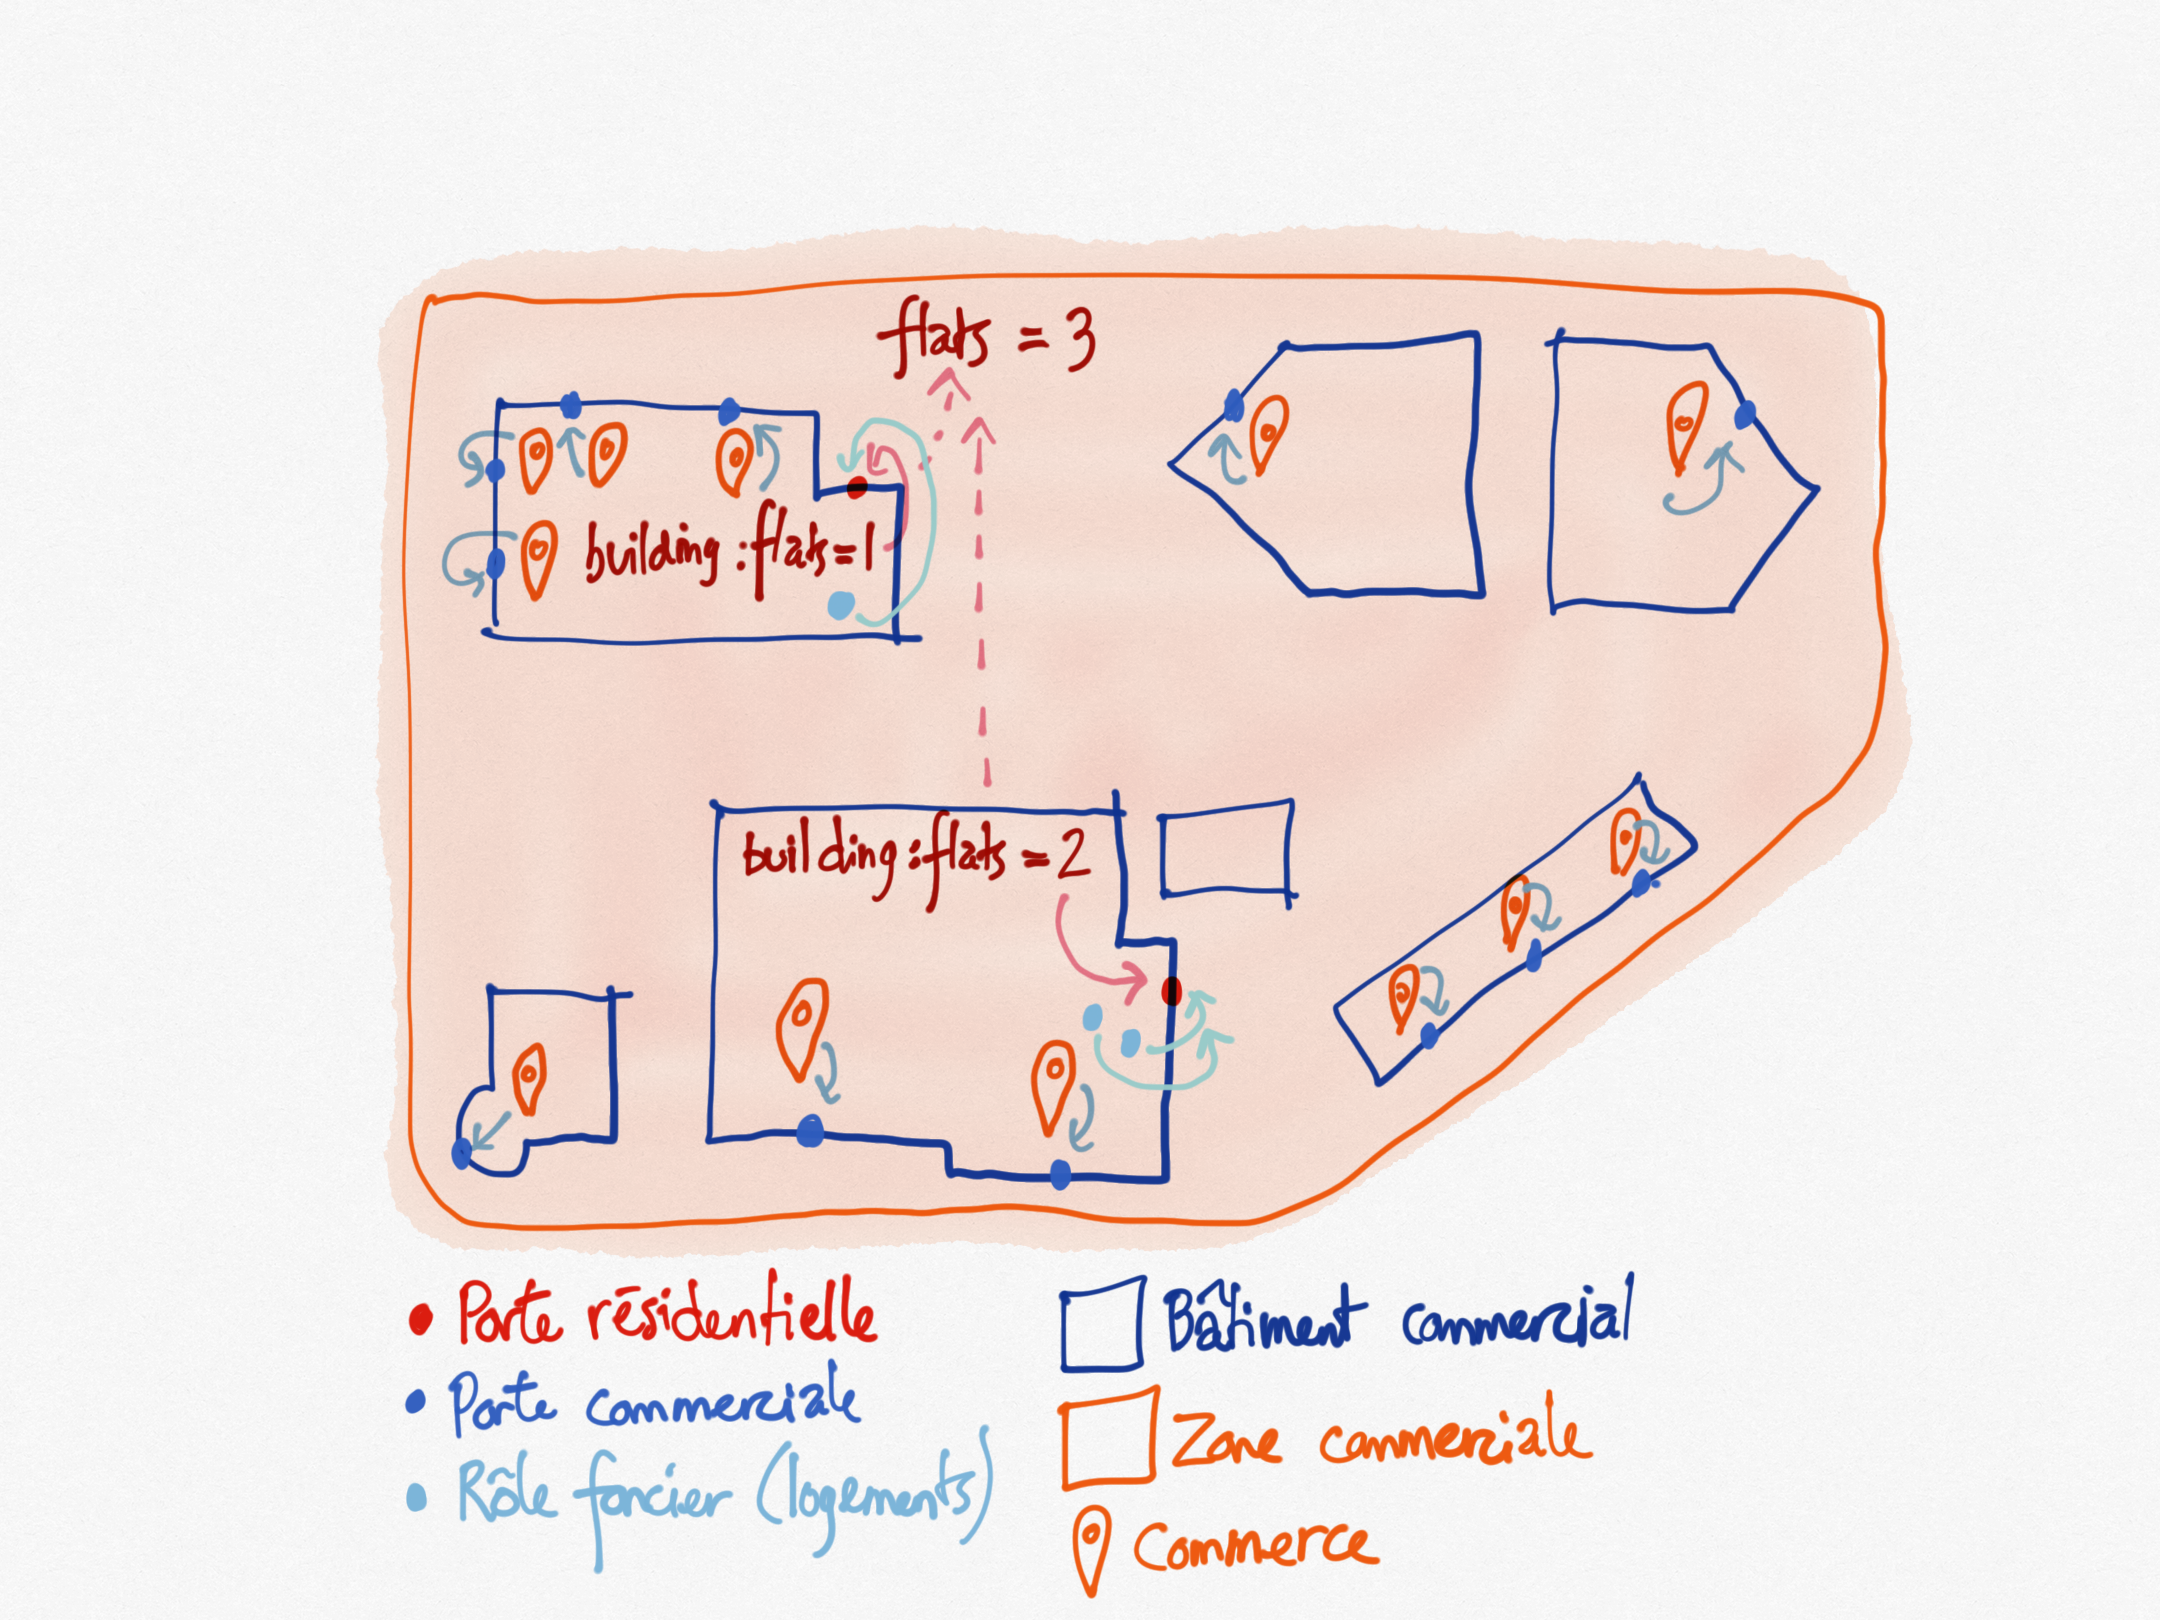 flats = 3
building:flats=1
building:flats = 2
Porte résidentielle
Porte commerciale
Rôle foncier (logements)
Bâtiment commercial
Zone commerciale
Commerce